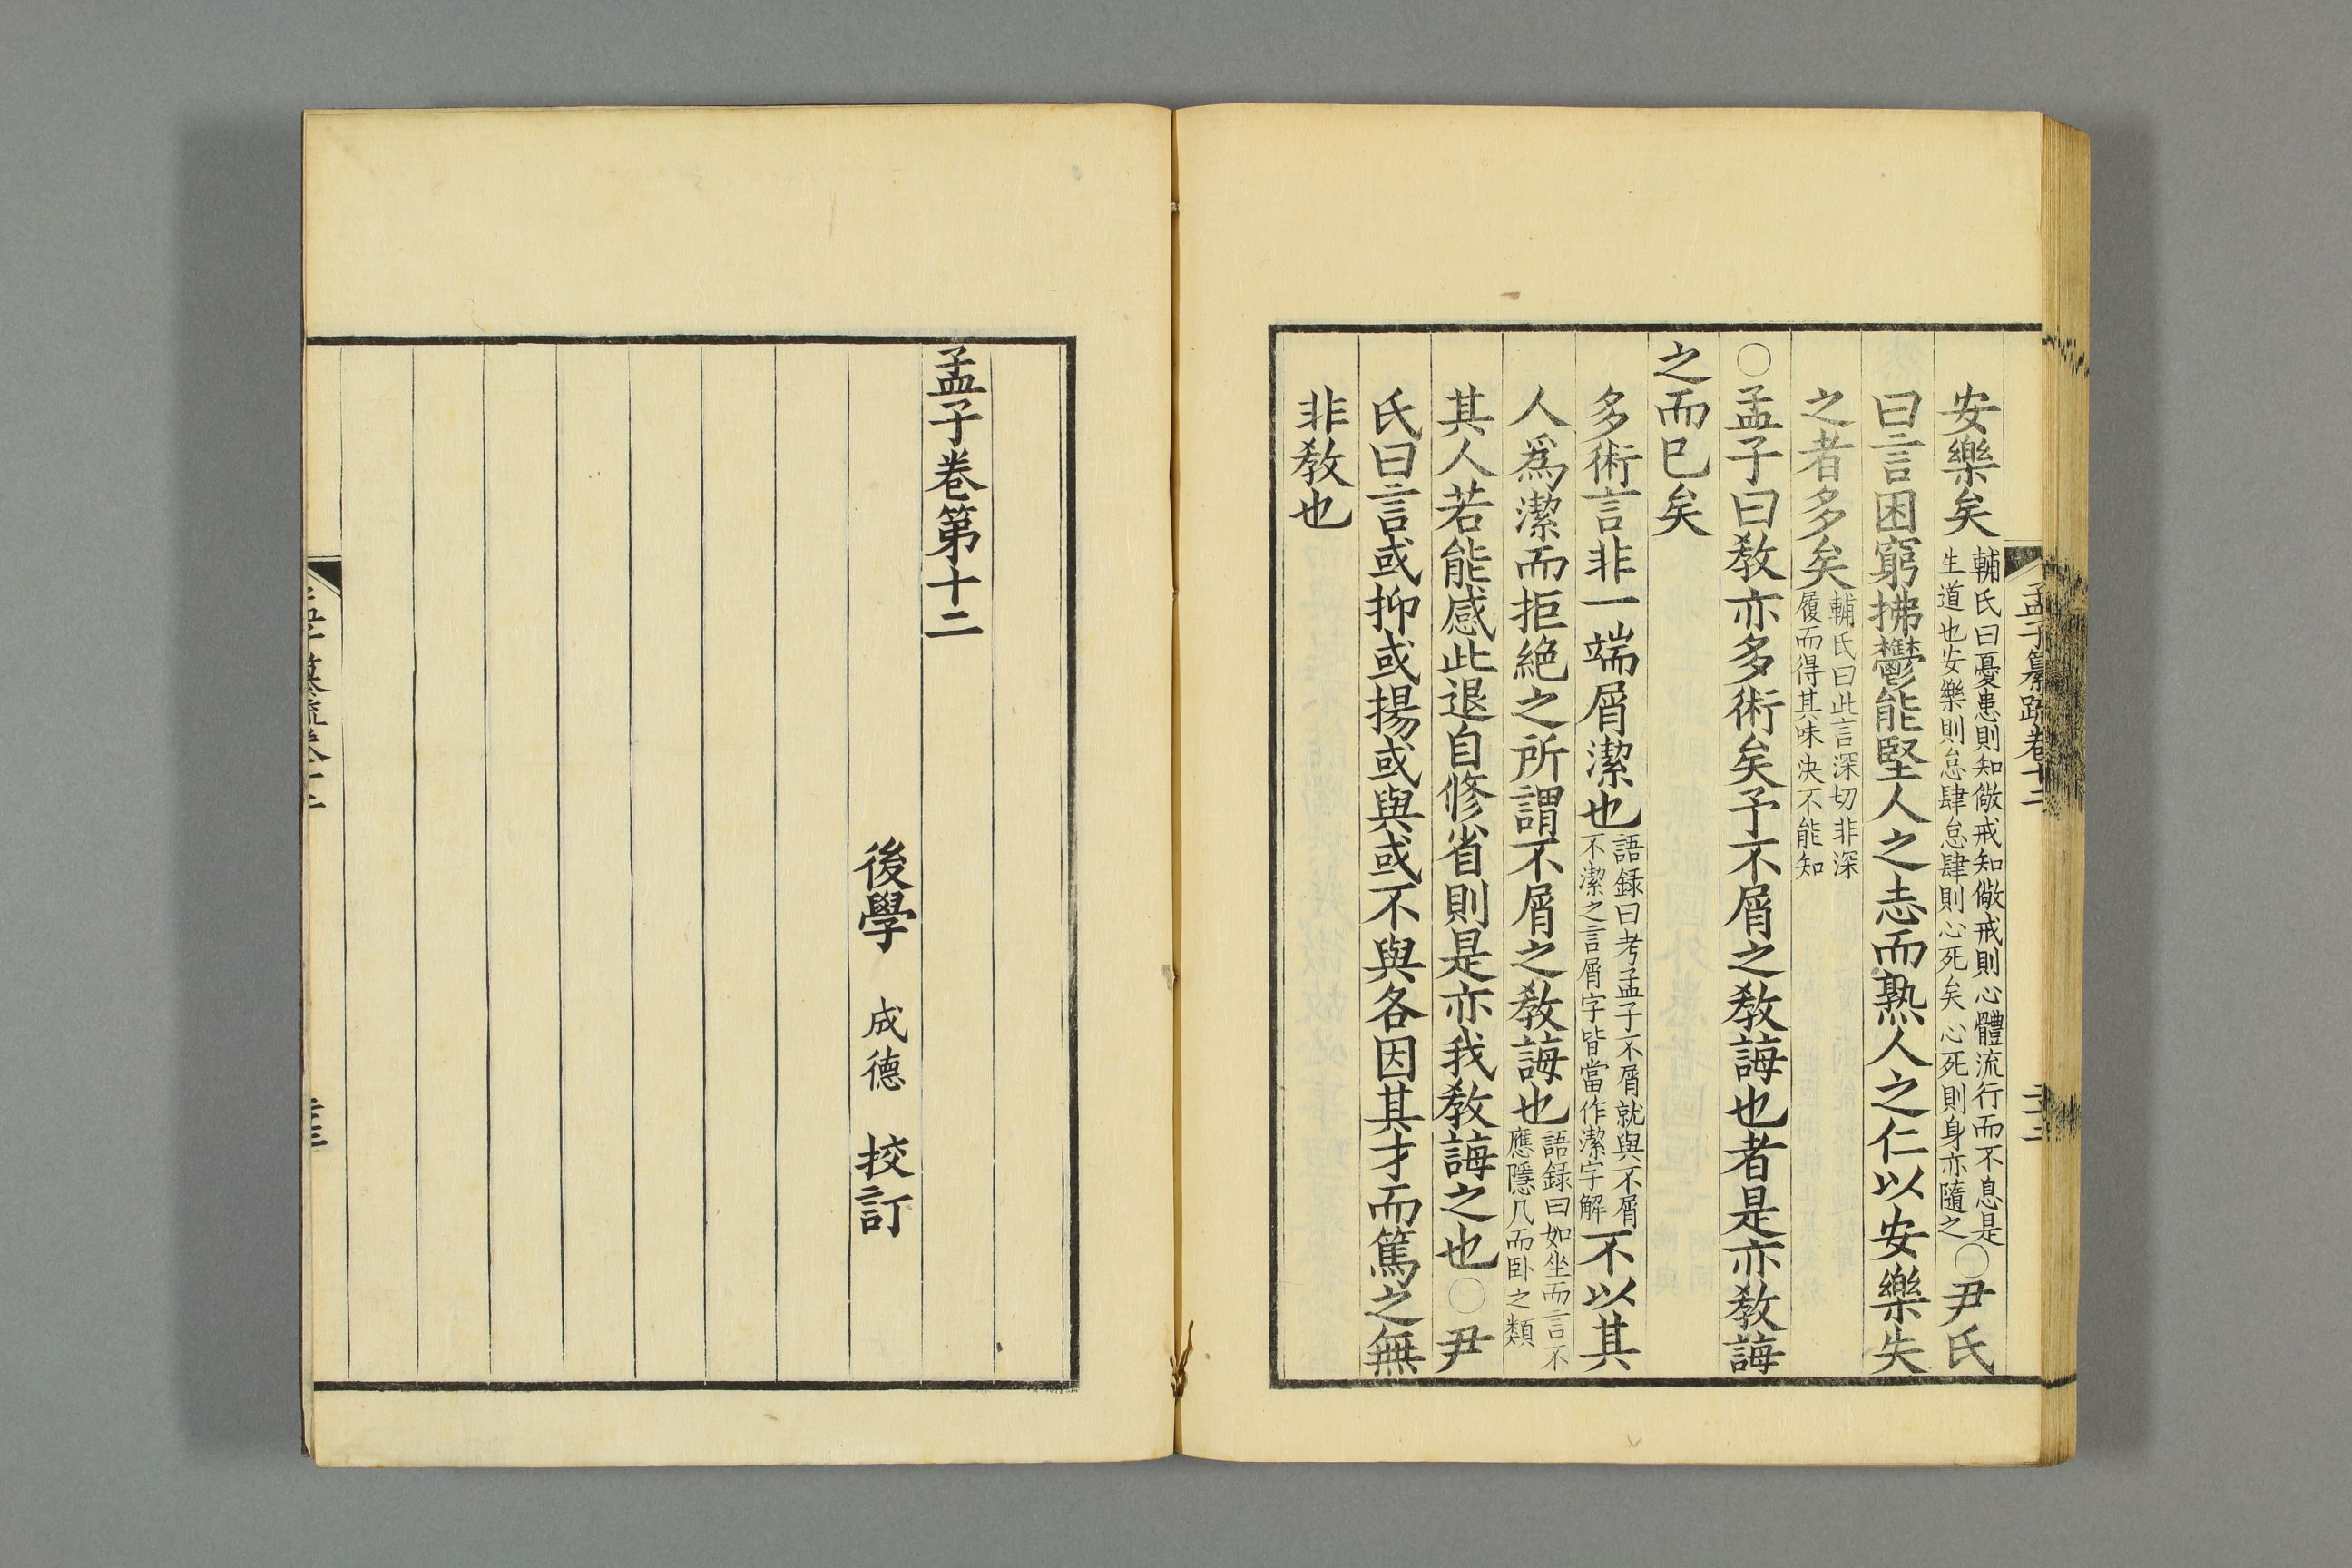 孟子纂疏卷十二
安樂矣輔氏曰憂患則知儆戒知儆戒則心體流行而不息是生道也安樂則怠肆怠肆則心死矣心死則身亦隨之○尹氏
曰言困窮拂鬱能堅人之志而熟人之仁以安樂失
之者多矣輔氏曰此言深切非深履而得其味決不能知
○孟子曰教亦多術矣予不屑之教誨也者是亦教誨
之而已矣
多術言非一端屑潔也語録曰考孟子不屑就與不屑不潔之言屑字皆當作潔字解不以其
人爲潔而拒絶之所謂不屑之教誨也語録曰如坐而言不應隱几而卧之類
其人若能感此退自修省則是亦我教誨之也○尹
氏曰言或抑或揚或與或不與各因其才而篤之無
非教也
孟子卷第十二
後學 成德 挍訂